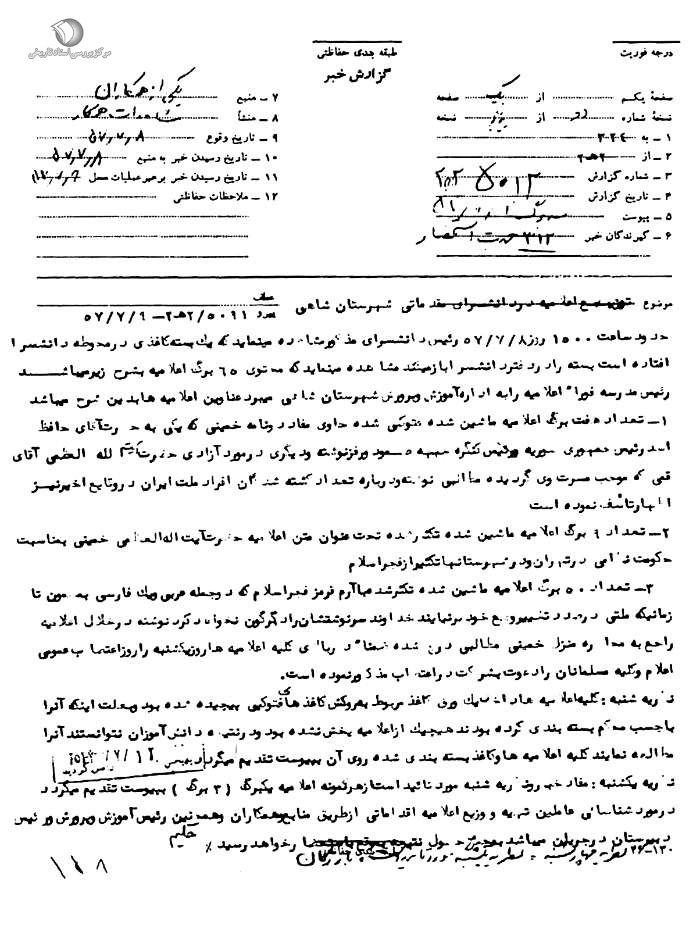 مرکز بررسی اسناد تاریخی
درجه فوریت
طبقه بندی حفاظتی
گزارش خبر
صفحهٔ یکم از یک صفحه
نسخهٔ شماره از نسخه
۱ ــ به ۳۲۴
۲ ــ از ۲ه۲
۳ ــ شماره گزارش
۴ ــ تاریخ گزارش
۵ ــ پیوست
۶ ــ گیرندگان خبر ۳۱۲
۷ ــ منبع یکی از همکاران
۸ ــ منشأ مشاهدات همکار
۹ ــ تاریخ وقوع ۵۷٫۷٫۸
۱۰ ــ تاریخ رسیدن خبر به منبع ۵۷٫۷٫۸
۱۱ ــ تاریخ رسیدن خبر برهبرعملیات محل
۱۲ ــ ملاحظات حفاظتی
موضوع توزیع اعلامیه در دانشسرای مقدماتی شهرستان شاهی
۵۰۹۱/۲ه۲ــ۵۷/۷/۹
حدود ساعت ۱۵۰۰ روز ۵۷/۷/۸ رئیس دانشسرای مذکور مشاهده مینماید که یک بسته کاغذی در محوطه دانشسرا
افتاده است بسته را در دفتر دانشسرا باز میکند مشاهده مینماید که محتوی ۶۵ برگ اعلامیه بشرح زیر میباشد
رئیس مدرسه فوراً اعلامیه را به اداره آموزش وپرورش شهرستان شاهی میبرد عناوین اعلامیه ها بدین شرح میباشد
۱ــ تعداد هفت برگ اعلامیه ماشین شده فتوکپی شده حاوی مفاد دونامه خمینی که یکی به حضرت آقای حافظ
اسد رئیس جمهوری سوریه ورئیس کنگره جبهه صمود ورفض نوشته ودیگری در مورد آزادی حضرت آیت الله العظمی آقای
قمی که موجب مسرت وی گردیده مطالبی نوشته ودرباره تعداد کشته شدگان افراد ملت ایران در وقایع اخیر نیز
اظهار تأسف نموده است
۲ــ تعداد ۹ برگ اعلامیه ماشین شده تکثیر شده تحت عنوان متن اعلامیه حضرت آیت اله العظمی خمینی بمناسبت
حکومت نظامی در تهران ودر شهرستانها تکثیر از فجر اسلام
۳ــ تعداد ۵۰ برگ اعلامیه ماشین شده تکثیر شده با آرم قرمز فجر اسلام که دو جمله عربی ویک فارسی بمضمون تا
زمانیکه ملتی در صدد تغییر وضع خود بر نیاید خداوند سرنوشتشان را دگرگون نخواهد کرد نوشته در خلال اعلامیه
راجع به محاصره منزل خمینی مطالبی درج شده ضمناً در پایان کلیه اعلامیه ها روز یکشنبه را روز اعتصاب عمومی
اعلام وکلیه مسلمانان را دعوت بشرکت در اعتصاب مذکور نموده است.
نظریه شنبه : کلیه اعلامیه های داخل یک ورق کاغذ مربوط به روکش کاغذ های فتوکپی پیچیده شده بود وبعلت اینکه آنرا
با چسب محکم بسته بندی کرده بودند هیچیک از اعلامیه پخش نشده بود ودر نتیجه دانش آموزان نتوانستند آنرا
مطالعه نمایند کلیه اعلامیه ها وکاغذ بسته بندی شده روی آن بپیوست تقدیم میگردد
نظریه یکشنبه : مفاد خبر ونظریه شنبه مورد تائید است از هر نمونه اعلامیه یکبرگ ( ۳ برگ ) بپیوست تقدیم میگردد
در مورد شناسائی عاملین تهیه وتوزیع اعلامیه اقداماتی از طریق منابع وهمکاران وهمچنین رئیس آموزش وپرورش ورئیس
دبیرستان در جریان میباشد حصول نتیجه خواهد رسید حکیم
۳۶ــ۱۳۰ نظریه چهارشنبه
طبقه بندی حفاظتی
۱۱۸